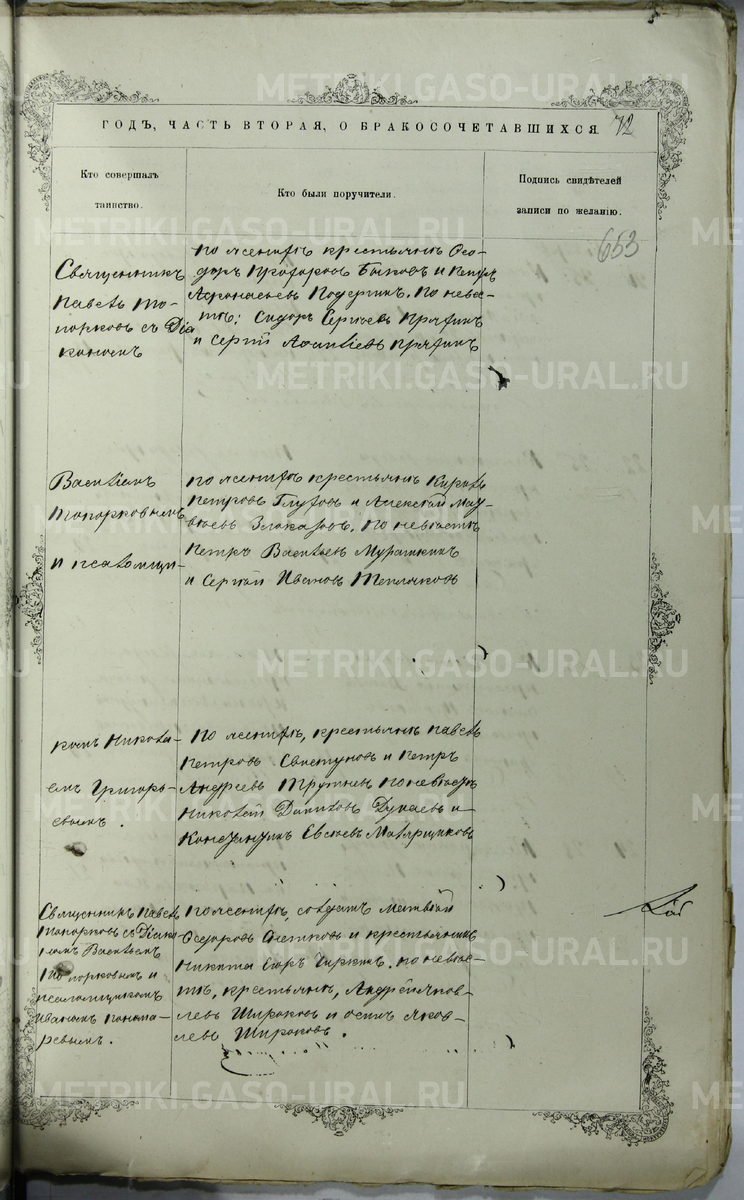 ГОДЪ, ЧАСТЬ ВТОРАЯ, О БРАКОСОЧЕТАВШИХСЯ.
72
Кто совершалъ таинство.
Кто были поручители.
Подпись свидѣтелей записи по желанію.
653
Священникъ
Павелъ То-
порковъ съ Діа
кономъ
По женихѣ крестьяне Ѳео-
доръ Прохоровъ Быковъ и Петръ
Афонасьевъ Подергин. По невѣс-
тѣ: Сидоръ Сергѣевъ Пряхинъ
и Сергій Пряхинъ
Василіемъ
Топорковымъ
и псаломщи-
По женихѣ крестьяне Кирилъ
Петровъ Глуховъ и Алексѣй Мат
вѣевъ Злоказовъ. По невѣстѣ
Петръ Васильевъ Мурашкинъ
и Сергѣй Ивановъ Тепляковъ
комъ Никола-
емъ Григорь-
евымъ.
По женихѣ, крестьяне Павелъ
Петровъ и Петръ
Андреевъ По невѣстѣ
Николай Даниловъ Дунаевъ и
Констнтинъ Евсѣевъ
Священникъ Павелъ
Топорковъ съ Діако
номъ Василіемъ
Топорковымъ и
псаломщикомъ
Иваномъ Понома-
ревымъ.
По женихѣ, солдатъ Матвѣй
Ѳедоровъ и крестьянинъ
Никита Чиркинъ. по невѣс-
тѣ, крестьяне, Андрей Яков-
левъ Широковъ и Осипъ Яков-
левъ Широковъ.
METRIKI.GASO-URAL.RU